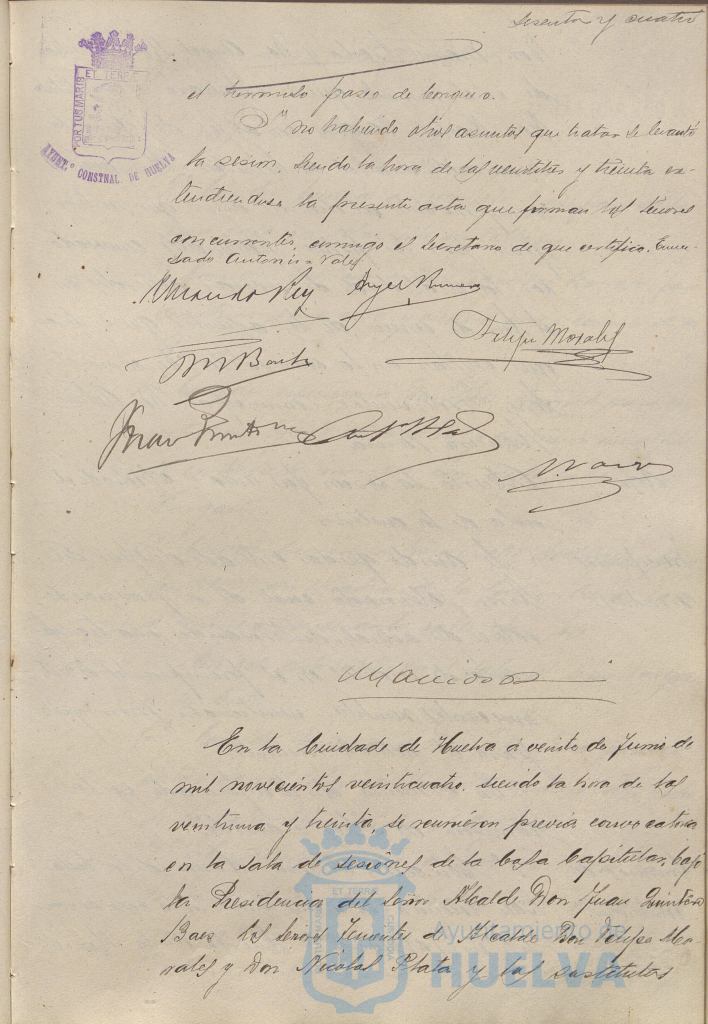 Sesenta y cuatro
PORTUS MARIS ET TERRÆ
AYUNT.º CONSTNAL. DE HUELVA
el hermoso paseo de
Y no habiendo otros asuntos que tratar se levantó
la sesión, siendo la hora de las veintitres y treinta ex-
tendiendose la presente acta que firman los Señores
concurrentes, conmigo el Secretario de que certifico. Enmen-
dado Antonio = Vale
Felipe Morales
En la Ciudade de Huelva á veinte de Junio de
mil novecientos veinticuatro, siendo la hora de las
veintiuna y treinta, se reunieron previa convocatoria
en la sala de sesiones de la Casa Capitular, bajo
la Presidencia del Señor Alcalde Don Juan Quintero
Baez los Señores Tenientes de Alcalde Don Felipe Mo-
rales y Don Nicolas Plata y los sustitutos
Ayuntamiento de
HUELVA